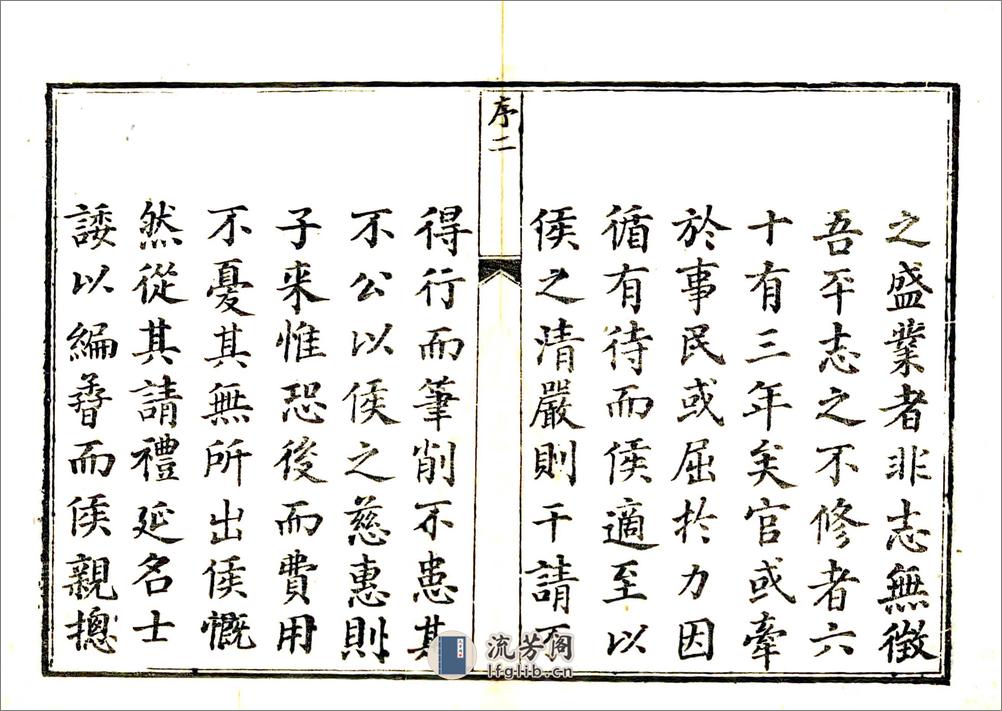 之盛業者非志無徵
吾平志之不修者六
十有三年矣官或牽
於事民或屈扵力因
循有待而侯適至以
侯之清嚴則干請不
序二
得行而筆削不患其
不公以侯之慈惠則
子来惟恐後而費用
不憂其無所出侯慨
然從其請禮延名士
諉以編摩而侯親摠
流芳阁
lfglib.cn